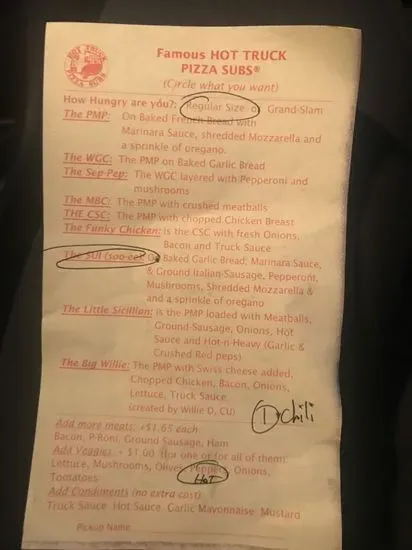 HOT TRUCK
PIZZA SUBS
Famous HOT TRUCK
PIZZA SUBS®
(Circle what you want)
How Hungry are you?: Regular Size or Grand-Slam
The PMP: On Baked French Bread with
Marinara Sauce, shredded Mozzarella and
a sprinkle of oregano.
The WGC: The PMP on Baked Garlic Bread
The Sep-Pep: The WGC layered with Pepperoni and
mushrooms
The MBC: The PMP with crushed meatballs
THE CSC: The PMP with chopped Chicken Breast
The Funky Chicken: is the CSC with fresh Onions,
Bacon and Truck Sauce
The SUI (soo-ee): On Baked Garlic Bread; Marinara Sauce,
& Ground Italian Sausage, Pepperoni,
Mushrooms, Shredded Mozzarella &
and a sprinkle of oregano
The Little Sicillian: is the PMP loaded with Meatballs,
Ground-Sausage, Onions, Hot
Sauce and Hot-n-Heavy (Garlic &
Crushed Red peps)
The Big Willie: The PMP with Swiss cheese added,
Chopped Chicken, Bacon, Onions,
Lettuce, Truck Sauce
(created by Willie D, CU)
1 Chili
Add more meats: +$1.65 each
Bacon, P-Roni, Ground Sausage, Ham
Add Veggies: + $1.00 (for one or for all of them)
Lettuce, Mushrooms, Olives, Peppers, Onions,
HOT
Tomatoes
Add Condiments (no extra cost)
Truck Sauce Hot Sauce Garlic Mayonnaise Mustard
Pickup Name